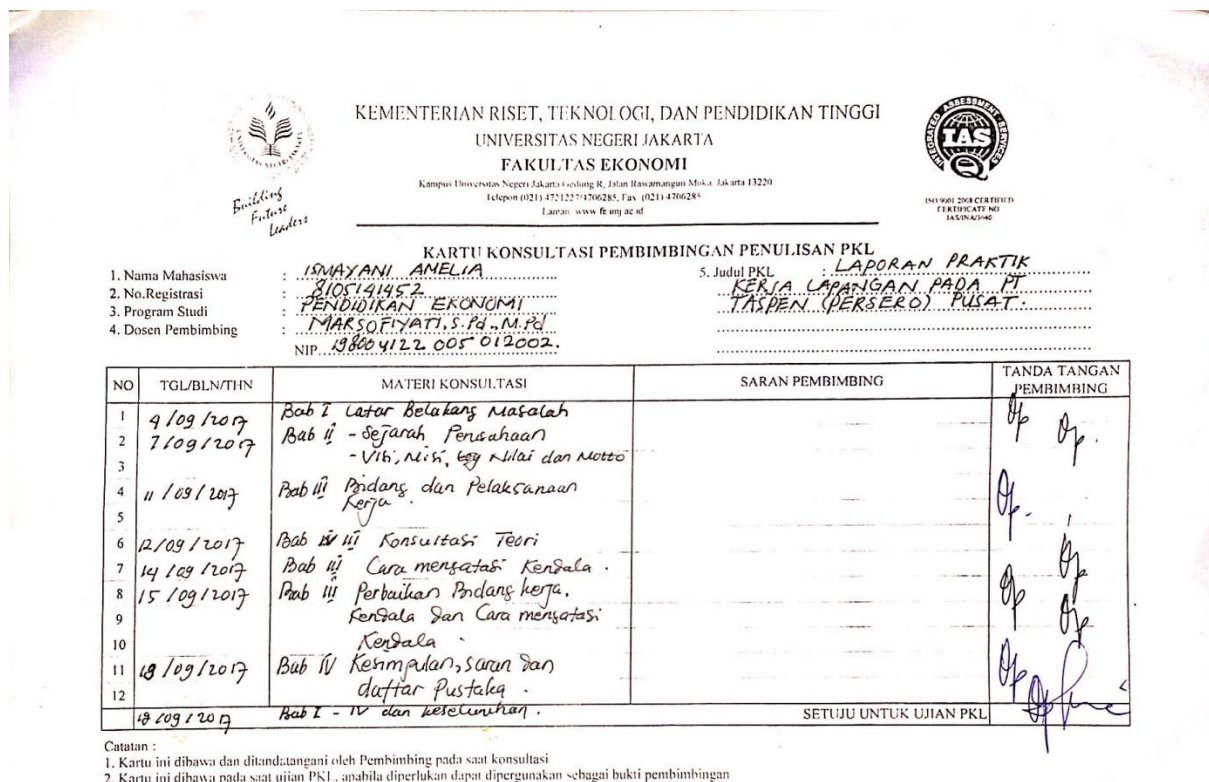 KEMENTERIAN RISET, TEKNOLOGI, DAN PENDIDIKAN TINGGI
UNIVERSITAS NEGERI JAKARTA
FAKULTAS EKONOMI
Kampus Universitas Negeri Jakarta Gedung R, Jalan Rawamangun Muka, Jakarta 13220
Telepon (021) 4721227/4706285, Fax. (021) 4706285
Laman: www.fe.unj.ac.id
Building
Future
Leaders
INTEGRATED ASSESSMENT SERVICES
IAS
ISO 9001:2008 CERTIFIED
CERTIFICATE NO
KARTU KONSULTASI PEMBIMBINGAN PENULISAN PKL
1. Nama Mahasiswa : ISMAYANI AMELIA
2. No.Registrasi : 8105141452
3. Program Studi : PENDIDIKAN EKONOMI
4. Dosen Pembimbing : MARSOFIYATI, S.Pd., M.Pd
NIP. 198004122 005 012002.
5. Judul PKL : LAPORAN PRAKTIK
KERJA LAPANGAN PADA PT
TASPEN (PERSERO) PUSAT.
NO TGL/BLN/THN MATERI KONSULTASI SARAN PEMBIMBING TANDA TANGAN PEMBIMBING
1 4/09/2017 Bab I Latar Belakang Masalah
2 7/09/2017 Bab II - Sejarah Perusahaan
3 - Visi, Misi, Nilai dan Motto
4 11/09/2017 Bab III Bidang dan Pelaksanaan
5 Kerja.
6 12/09/2017 Bab III Konsultasi Teori
7 14/09/2017 Bab III Cara mengatasi Kendala.
8 15/09/2017 Bab III Perbaikan Bidang kerja,
9 Kendala dan Cara mengatasi
10 Kendala.
11 18/09/2017 Bab IV Kesimpulan, saran dan
12 daftar Pustaka.
18/09/2017 Bab I - IV dan keseluruhan. SETUJU UNTUK UJIAN PKL
Catatan :
1. Kartu ini dibawa dan ditandatangani oleh Pembimbing pada saat konsultasi
2. Kartu ini dibawa pada saat ujian PKL, apabila diperlukan dapat dipergunakan sebagai bukti pembimbingan